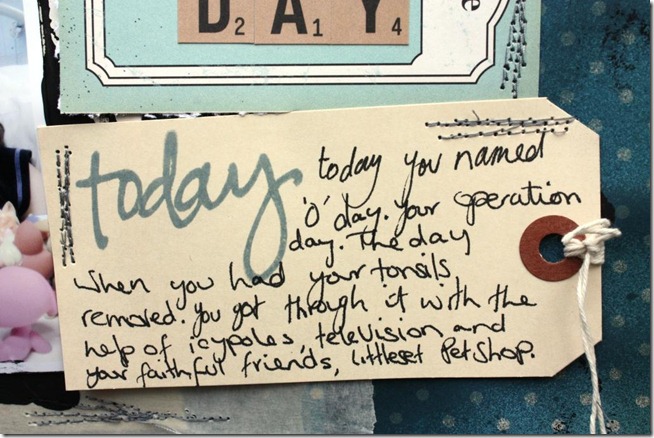 DAY
2 1 4
today
today you named
'O' day. Your operation
day. The day
when you had your tonsils
removed. you got through it with the
help of icypoles, television and
your faithful friends, littleset Pet Shop.